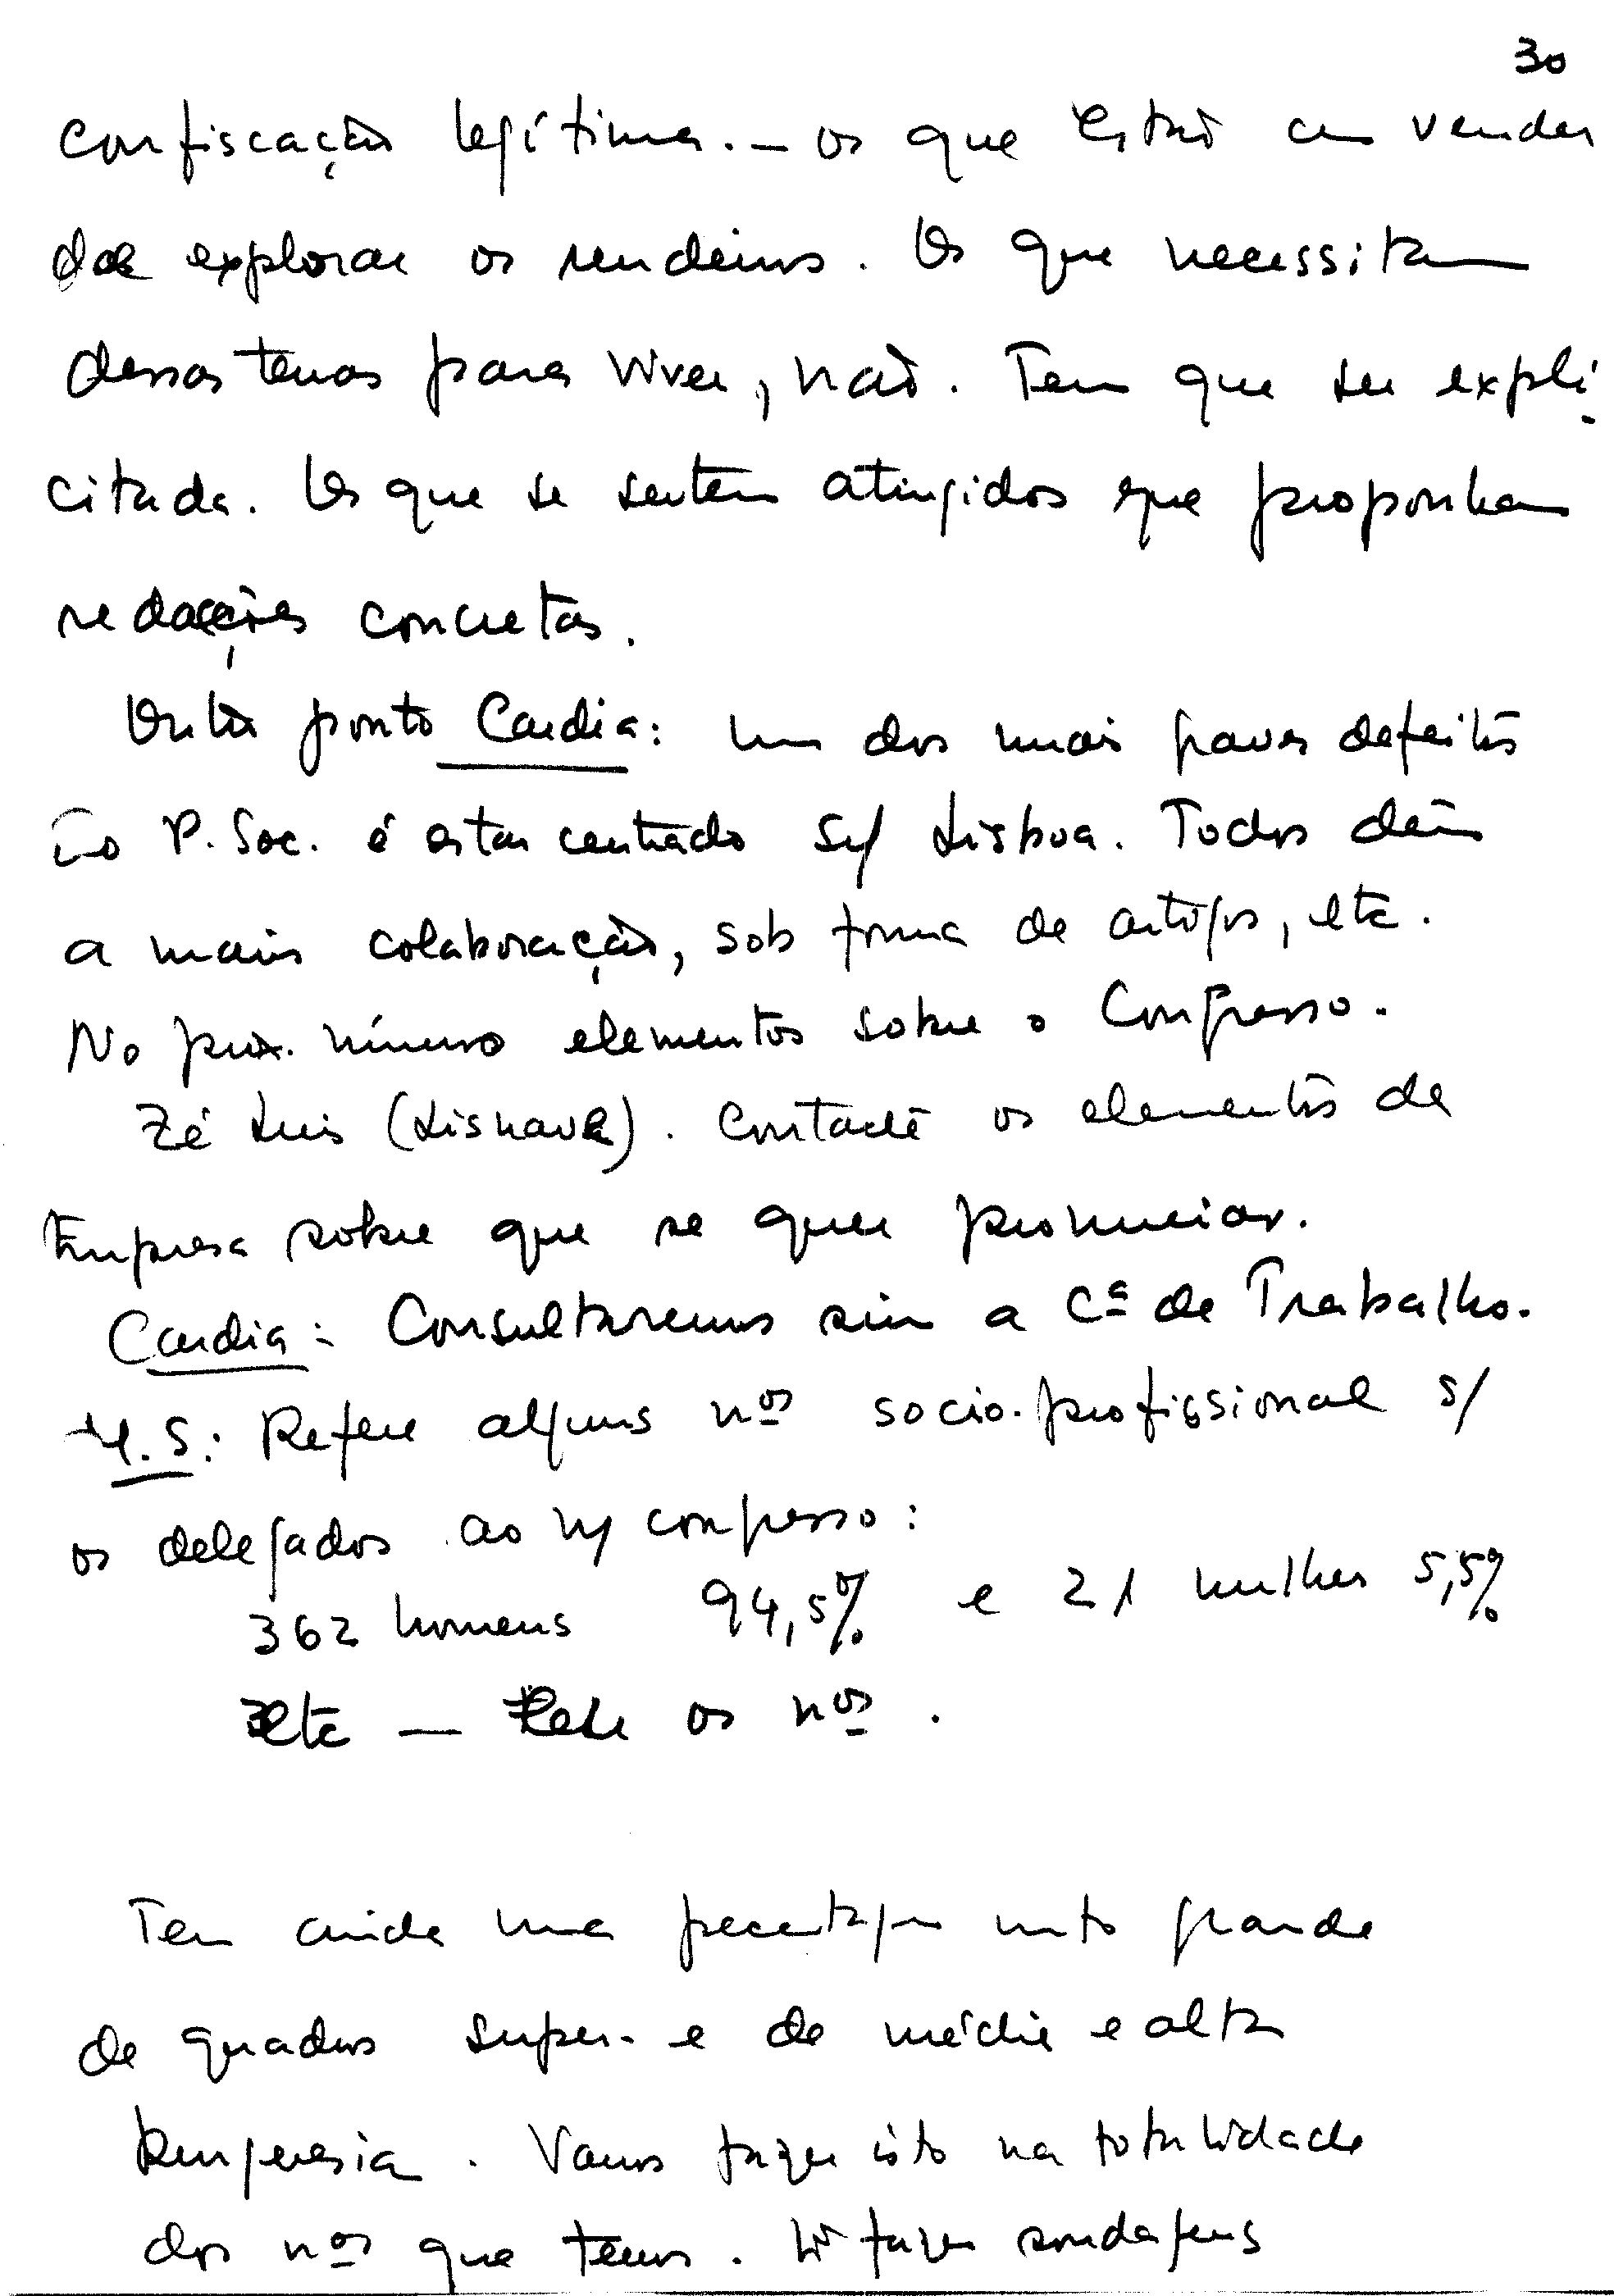 30
confiscação legítima. — os que estão a vender
de explorar os rendeiros. Os que necessitam
dessas terras para viver, não. Tem que ser expli-
citada. Os que se sentem atingidos que proponham
redacções concretas.
Outro ponto Cardia: Um dos mais graves defeitos
no P. Soc. é estar centrado s/ Lisboa. Todos dêm
a maior colaboração, sob forma de artigos, etc.
No próx. número elementos sobre o Congresso.
Zé Luis (Lisnave). Contacte os elementos da
Empresa sobre que se quer pronunciar.
Cardia: Consultaremos sim a Cª de Trabalho.
M.S.: Refere alguns nos socio-profissional s/
os delegados ao n/ congresso:
362 homens 94,5% e 21 mulher 5,5%
Etc — Rele os nos.
Tem ainda uma pecentagem mto grande
de quadros super. e de média e alta
burguesia. Vamos fazer isto na totalidade
dos nos que temos. fazer sondagens